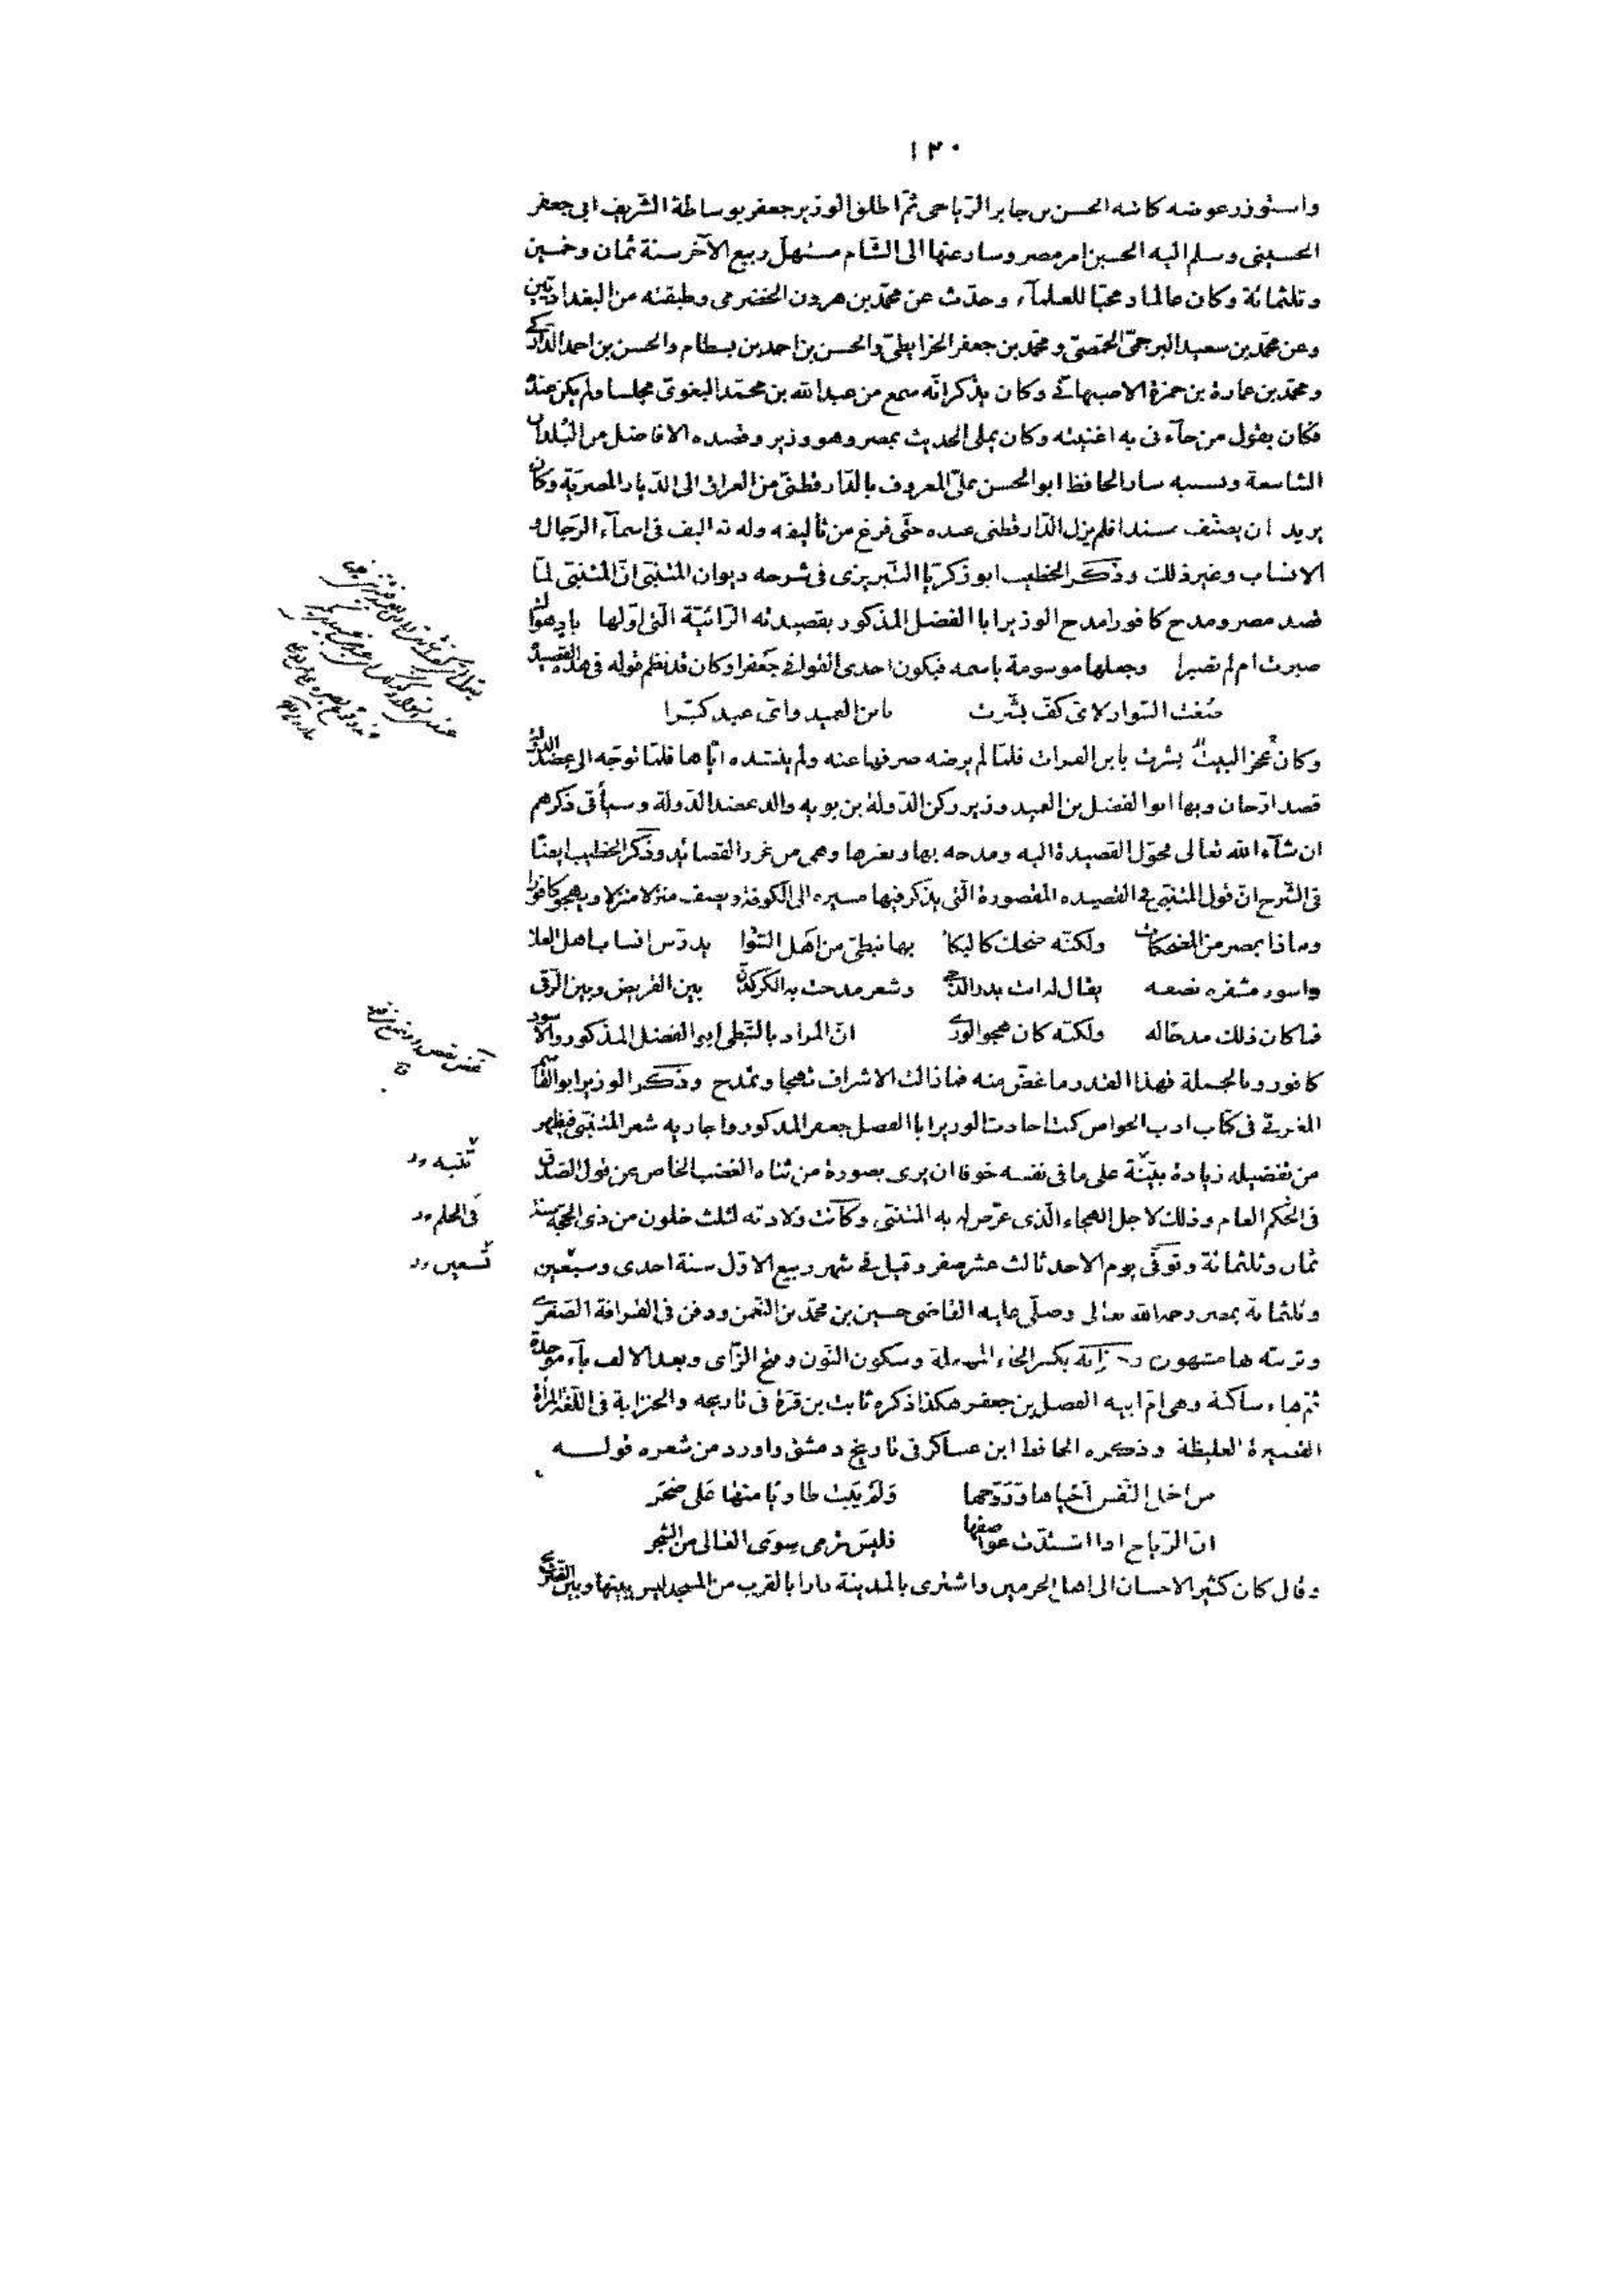 ١٢٠
واستوزر عوضه كاتبه الحسن بن جابر الرياحى ثمّ اطلق الوزير جعفر بوساطة الشّريف ابى جعفر
الحسينى وسلم اليه الحسين امر مصر وسار عنها الى الشّام مستهلّ ربيع الآخر سنة ثمان وخمسين
وثلثمائة وكان عالما ومحبّا للعلمآء وحدّث عن محمّد بن هرون الحضرمى وطبقته من البغداديّين
وعن محمّد بن سعيد البرجمىّ الحمصىّ ومحمّد بن جعفر الخرايطىّ والحسن بن احمد بن بسطام والحسن بن احمد الدّاركى
ومحمّد بن عمارة بن حمزة الاصبهانى وكان يذكر انّه سمع من عبد الله بن محمّد البغوىّ مجلسا ولم يكن عنده
فكان يقول من جآءنى به اغنيته وكان يملى الحديث بمصر وهو وزير وقصده الافاضل من البلدان
الشاسعة وبسببه سار الحافظ ابو الحسن علىّ المعروف بالدّارقطنىّ من العراق الى الدّيار المصريّة وكان
يريد ان يصنّف مسندا فلم يزل الدّارقطنى عنده حتّى فرغ من تأليفه وله تواليف فى اسمآء الرّجال و
الانساب وغير ذلك وذكر الخطيب ابو زكريّا التّبريزى فى شرحه ديوان المتنبّى انّ المتنبّى لمّا
قصد مصر ومدح كافورا مدح الوزير ابا الفضل المذكور بقصيدته الرّائيّة الّتى اوّلها بادٍ هواك
صبرت ام لم تصبرا وجعلها موسومة باسمه فيكون احدى القوافى جعفرا وكان قد نظم قوله فى هذه القصيدة
صُغت السّوار لاىّ كفّ بشّرت بابن العميد واىّ عبد كبّرا
وكان عجز البيت بشرت بابن الفرات فلمّا لم يرضه صرفها عنه ولم ينشده ايّاها فلمّا توجّه الى عضد الدّولة
قصد ارّجان وبها ابو الفضل بن العميد وزير ركن الدّولة بن بويه والد عضد الدّولة وسيأتى ذكرهم
ان شآء الله تعالى فحوّل القصيدة اليه ومدحه بها وبغيرها وهى من غرر القصائد وذكر الخطيب ايضا
فى الشّرح انّ قول المتنبّى فى القصيده المقصورة الّتى يذكر فيها مسيره الى الكوفة ويصف منزلا منزلا ويهجو كافورا
وماذا بمصر من المضحكات ولكنّه ضحك كالبكا بها نبطىّ من اهل السّوا يدرّس انساب اهل العلا
واسود مشفره نصفه يقال له انت بدر الدّجى وشعر مدحت به الكركدّن بين القريض وبين الرّقى
فما كان ذلك مدحا له ولكنّه كان هجو الورى انّ المراد بالنّبطى ابو الفضل المذكور والاسود
كافور وبالجملة فهذا القدر ما غضّ منه فما زالت الاشراف تهجا وتمدح وذكر الوزير ابو القاسم
المغربىّ فى كتاب ادب الخواص كنت احادث الوزير ابا الفضل جعفر المذكور واجاريه شعر المتنبّى فيظهر
من تفضيله زيادة بيّنة على ما فى نفسه خوفا ان يرى بصورة من ثناه الغضب الخاص عن قول الصّدق
فى الحكم العام وذلك لاجل الهجاء الّذى عرّض له به المتنبّى وكانت ولادته لثلث خلون من ذى الحجّة سنة
ثمان وثلثمائة وتوفّى يوم الاحد ثالث عشر صفر وقيل فى شهر ربيع الاوّل سنة احدى وسبعين
وثلثمائة بمصر رحمه الله تعالى وصلّى عليه القاضى حسين بن محمّد بن النّعمن ودفن فى القرافة الصّغرى
وتربته بها مشهورة وحنزابة بكسر الحاء المهملة وسكون النّون وفتح الزّاى وبعد الالف بآء موحّدة
ثمّ هاء ساكنة وهى امّ ابيه الفضل بن جعفر هكذا ذكره ثابت بن قرّة فى تاريخه والحنزابة فى اللّغة المرأة
القصيرة الغليظة وذكره الحافظ ابن عساكر فى تاريخ دمشق واورد من شعره قوله
من اخمل النّفس احياها وروّحها ولم يبت طاويا منها على ضجر
انّ الرّياح اذا اشتدّت عواصفها فليس ترمى سوى العالى من الشّجر
وقال كان كثير الاحسان الى اهل الحرمين واشترى بالمدينة دارا بالقرب من المسجد ليس بينها وبين القبر
تثبّه
فى الحلم
تسعين